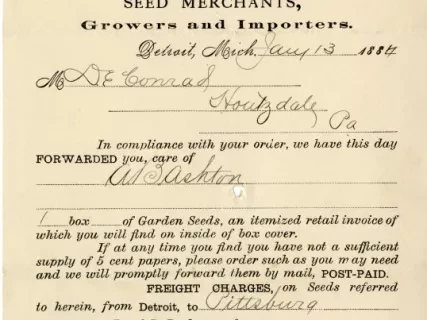 SEED MERCHANTS,
Growers and Importers.
Detroit, Mich. Jany 13 1884
M D E Conrad
Houtzdale
Pa
In compliance with your order, we have this day
FORWARDED you, care of
W B Ashton
1 box of Garden Seeds, an itemized retail invoice of
which you will find on inside of box cover.
If at any time you find you have not a sufficient
supply of 5 cent papers, please order such as you may need
and we will promptly forward them by mail, POST-PAID.
FREIGHT CHARGES, on Seeds referred
to herein, from Detroit, to Pittsburg